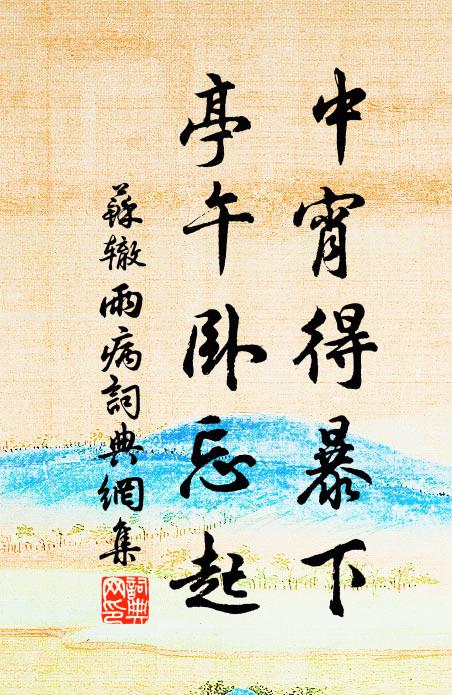 中宵得暴下
亭午卧忘起
蘇辙雨病詞典網集
詞典